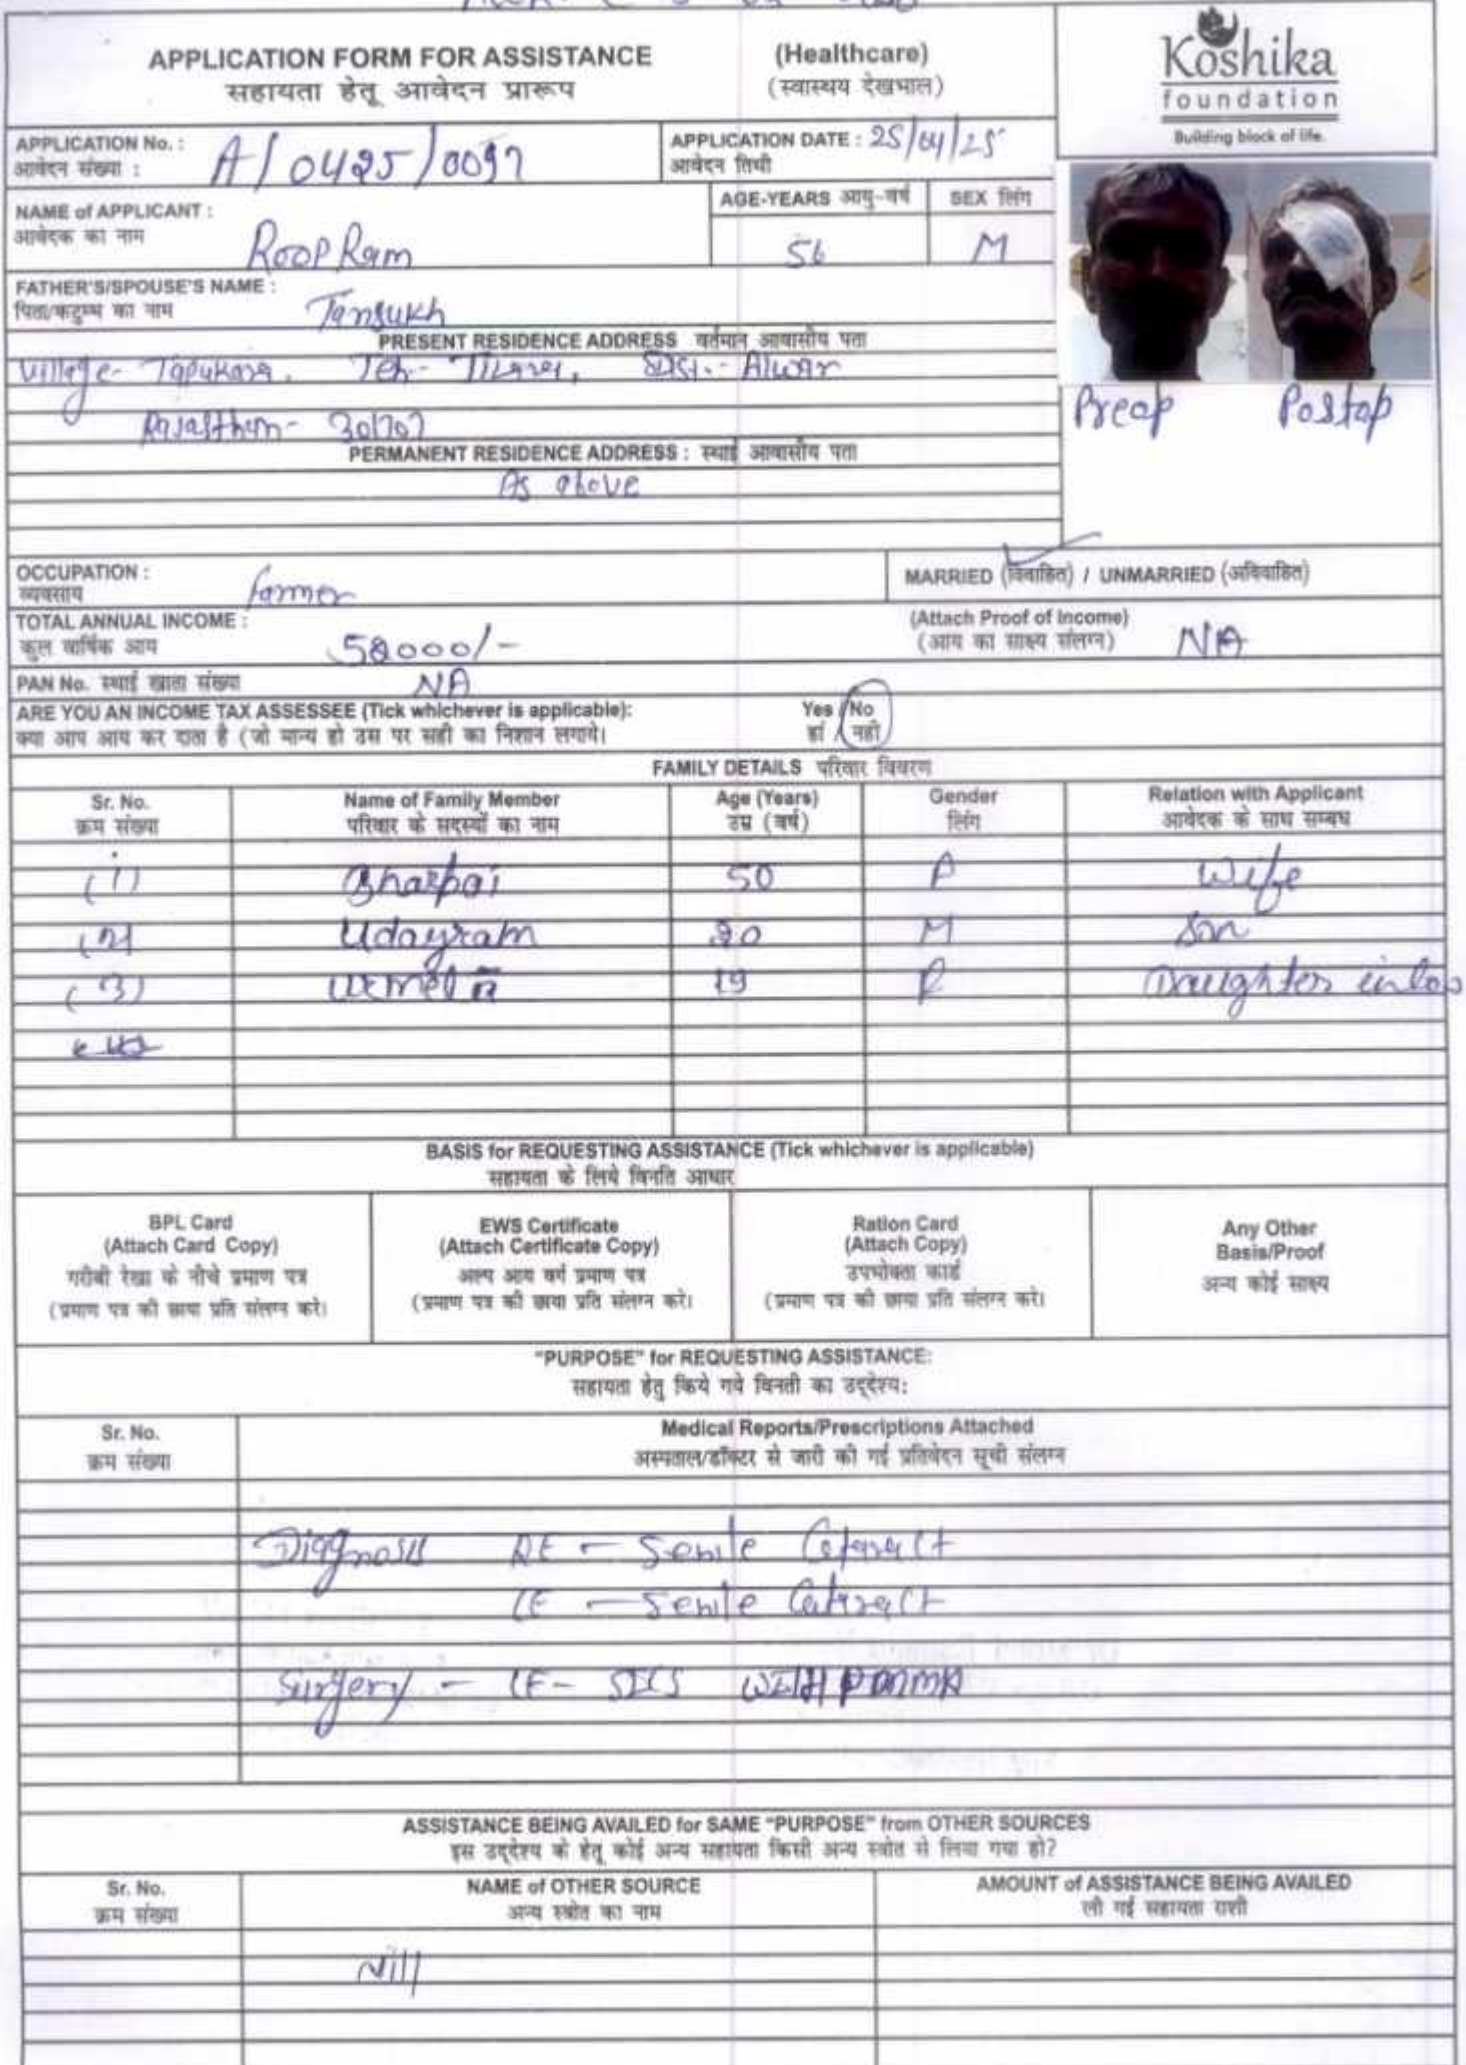 APPLICATION FORM FOR ASSISTANCE (Healthcare)
सहायता हेतू आवेदन प्रारूप (स्वास्थय देखभाल)
Koshika
foundation
Building block of life.
APPLICATION No. : A/0425/0097
आवेदन संख्या :
APPLICATION DATE : 25/04/25
आवेदन तिथी
NAME of APPLICANT : Roop Ram
आवेदक का नाम
AGE-YEARS आयु-वर्ष 56
SEX लिंग M
FATHER'S/SPOUSE'S NAME : Tansukh
पिता/कटुम्ब का नाम
PRESENT RESIDENCE ADDRESS वर्तमान आवासीय पता
Village- Tapukara, Teh- Tijara, Dist.- Alwar
Rajasthan- 301707
Preop Postop
PERMANENT RESIDENCE ADDRESS : स्थाई आवासीय पता
As above
OCCUPATION : farmer
व्यवसाय
MARRIED (विवाहित) / UNMARRIED (अविवाहित)
TOTAL ANNUAL INCOME : 58000/-
कुल वार्षिक आय
(Attach Proof of Income) NA
(आय का साक्ष्य संलग्न)
PAN No. स्थाई खाता संख्या NA
ARE YOU AN INCOME TAX ASSESSEE (Tick whichever is applicable): Yes / No
क्या आप आय कर दाता है (जो मान्य हो उस पर सही का निशान लगाये। हां / नही
FAMILY DETAILS परिवार विवरण
Sr. No. Name of Family Member Age (Years) Gender Relation with Applicant
क्रम संख्या परिवार के सदस्यों का नाम उम्र (वर्ष) लिंग आवेदक के साथ सम्बध
(1) Bharpai 50 F Wife
(2) Udayram 20 M Son
(3) 19 F Daughter in law
BASIS for REQUESTING ASSISTANCE (Tick whichever is applicable)
सहायता के लिये विनति आधार
BPL Card
(Attach Card Copy)
गरीबी रेखा के नीचे प्रमाण पत्र
(प्रमाण पत्र की छाया प्रति संलग्न करे।
EWS Certificate
(Attach Certificate Copy)
अल्प आय वर्ग प्रमाण पत्र
(प्रमाण पत्र की छाया प्रति संलग्न करे।
Ration Card
(Attach Copy)
उपभोक्ता कार्ड
(प्रमाण पत्र की छाया प्रति संलग्न करे।
Any Other
Basis/Proof
अन्य कोई साक्ष्य
"PURPOSE" for REQUESTING ASSISTANCE:
सहायता हेतु किये गये विनती का उद्देश्य:
Sr. No. Medical Reports/Prescriptions Attached
क्रम संख्या अस्पताल/डॉक्टर से जारी की गई प्रतिवेदन सूची संलग्न
Diagnosis RE - Senile Cataract
LE - Senile Cataract
Surgery - LE- SICS WITH PMMA
ASSISTANCE BEING AVAILED for SAME "PURPOSE" from OTHER SOURCES
इस उद्देश्य के हेतू कोई अन्य सहायता किसी अन्य स्त्रोत से लिया गया हो?
Sr. No. NAME of OTHER SOURCE AMOUNT of ASSISTANCE BEING AVAILED
क्रम संख्या अन्य स्त्रोत का नाम ली गई सहायता राशी
Nill